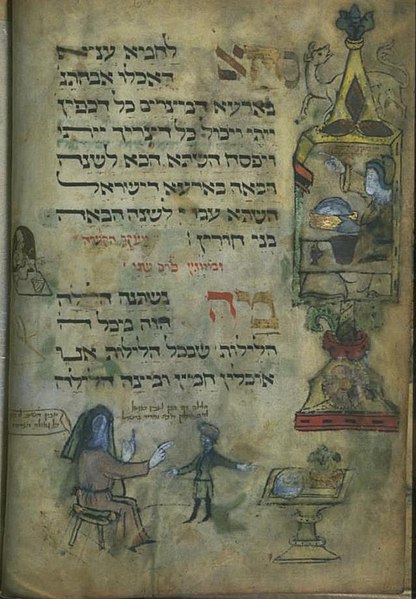 כהא לחמיא עניא
דאכלו אבהתנ
בארעא דמיצרים כל דכפין
ייתי ויכול כל דצריך ייתי
ויפסח השתא הכא לשנה
הבאה בארעא דישראל
השתא עבדי לשנה הבאה
בני חורין הקערה
ומוזגין כוס שני
מה נשתנה הלילה
הזה מיכל ה
הלילות שבכל הלילות אנו
אוכלין חמץ ומצה הלילה